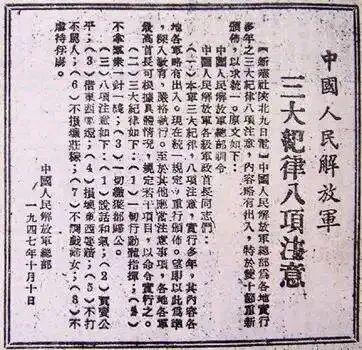 中國人民解放軍
三大紀律八項注意
【新華社陝北九日電】中國人民解放軍總部為各地實行
多年之三大紀律八項注意，內容略有出入，特於雙十節重新
頒佈，以求統一。原文如下：
中國人民解放軍總部訓令
中國人民解放軍各級軍政首長同志們：
（一）本軍三大紀律，八項注意，實行多年，其內容各
地各軍略有出入。現在統一規定，重行頒佈。望即以此為準
，深入教育，嚴格執行。至於其他應當注意事項，各地各軍
最高首長可根據具體情況，規定若干項目，以命令實行之。
（二）三大紀律如下：（1）一切行動聽指揮；（2）
不拿羣衆一針一線；（3）一切繳獲歸公。
（三）八項注意如下：（1）說話和氣；（2）買賣公
平；（3）借東西要還；（4）損壞東西要賠；（5）不打
人罵人；（6）不損壞莊稼；（7）不調戲婦女；（8）不
虐待俘虜。
中國人民解放軍總部
一九四七年十月十日